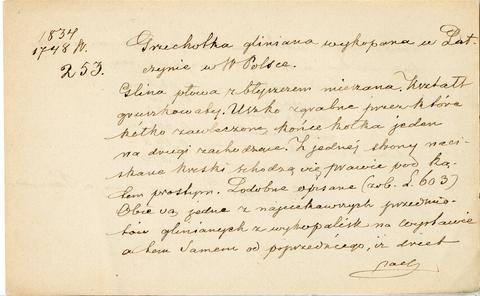 1834
1748 N.
253.
Grzechotka gliniana wykopana w Dut-
czynie w W Polsce.
Glina płowa z błyszczem mieszana. Kształt
gruszkowaty. Uszko zgrabne przez które
kółko zawleczone, końce kółka jeden
na drugi zachodzące. Z jednej strony naci-
skane kreski schodzą się prawie pod ką-
tem prostym. Podobne opisane (zob. L. 603)
Obie są jedne z najciekawszych przedmio-
tów glinianych z wykopalisk na wystawie
a tem samem od poprzedniego, iż